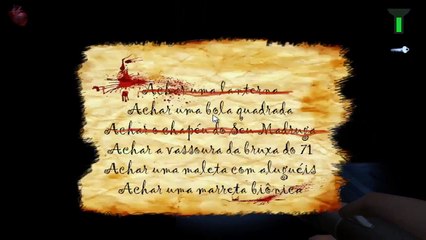 Achar uma lanterna
Achar uma bola quadrada
Achar o chapéu do Seu Madruga
Achar a vassoura da bruxa do 71
Achar uma maleta com aluguéis
Achar uma marreta biônica